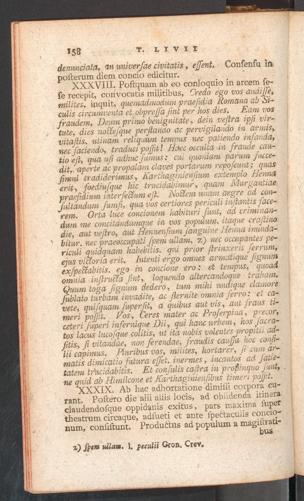 158 T. LIVII
denunciata, an universae civitatis, essent. Consensu in
posterum diem concio edicitur.
XXXVIII. Postquam ab eo conloquio in arcem se-
se recepit, convocatis militibus, Credo ego vos audisse,
milites, inquit, quemadmodum praesidia Romana ab Si-
culis circumventa et obpressa sint per hos dies. Eam vos
fraudem, Deûm primo benignitate, dein vestra ipsi vir-
tute, dies noctesque perstando ac pervigilando in armis,
vitastis. utinam reliquum tempus nec patiendo infanda,
nec faciendo, traduci possit! Haec occulta in fraude cau-
tio est, qua usi adhuc sumus: cui quoniam parum succe-
dit, aperte ac propalam claves portarum reposcunt: quas
simul tradiderimus, Karthaginiensium extemplo Henna
erit, foediusque hic trucidabimur, quam Murgantiae
praesidium interfectum est. Noctem unam aegre ad con-
sultandum sumsi, qua vos certiores periculi instantis face-
rem. Orta luce concionem habituri sunt, ad criminan-
dum me concitandumque in vos populum. itaque crastino
die, aut vestro, aut Hennensium sanguine Henna inunda-
bitur. nec praeoccupati spem ullam, 2) nec occupantes pe-
riculi quidquam habebitis. qui prior strinxerit ferrum,
ejus victoria erit. Intenti ergo omnes armatique signum
exspectabitis. ego in concione ero: et tempus, quoad
omnia instructa sint, loquendo altercandoque traham.
Quum toga signum dedero, tum mihi undique clamore
sublato turbam invadite, ac sternite omnia ferro: et ca-
vete, quisquam supersit, a quibus aut vis, aut fraus ti-
meri possit. Vos, Ceres mater ac Proserpina, precor,
ceteri superi infernique Dii, qui hanc urbem, hos sacra-
tos lacus lucosque colitis, ut ita nobis volentes propitii ad-
sitis, si vitandae, non ferendae, fraudis caussa hoc consi-
lii capimus. Pluribus vos, milites, hortarer, si cum ar-
matis dimicatio futura esset. inermes, incautos ad satie-
tatem trucidabitis. Et consulis castra in propinquo sunt,
ne quid ab Himilcone et Karthaginiensibus timeri possit.
XXXIX. Ab hac adhortatione dimissi corpora cu-
rant. Postero die alii aliis locis, ad obsidenda itinera
claudendosque oppidanis exitus, pars maxima super
theatrum circaque, adsueti et ante spectaculis concio-
num, consistunt. Productus ad populum a magistrati-
bus
2) spem ullam. l. peculii Gron. Crev.